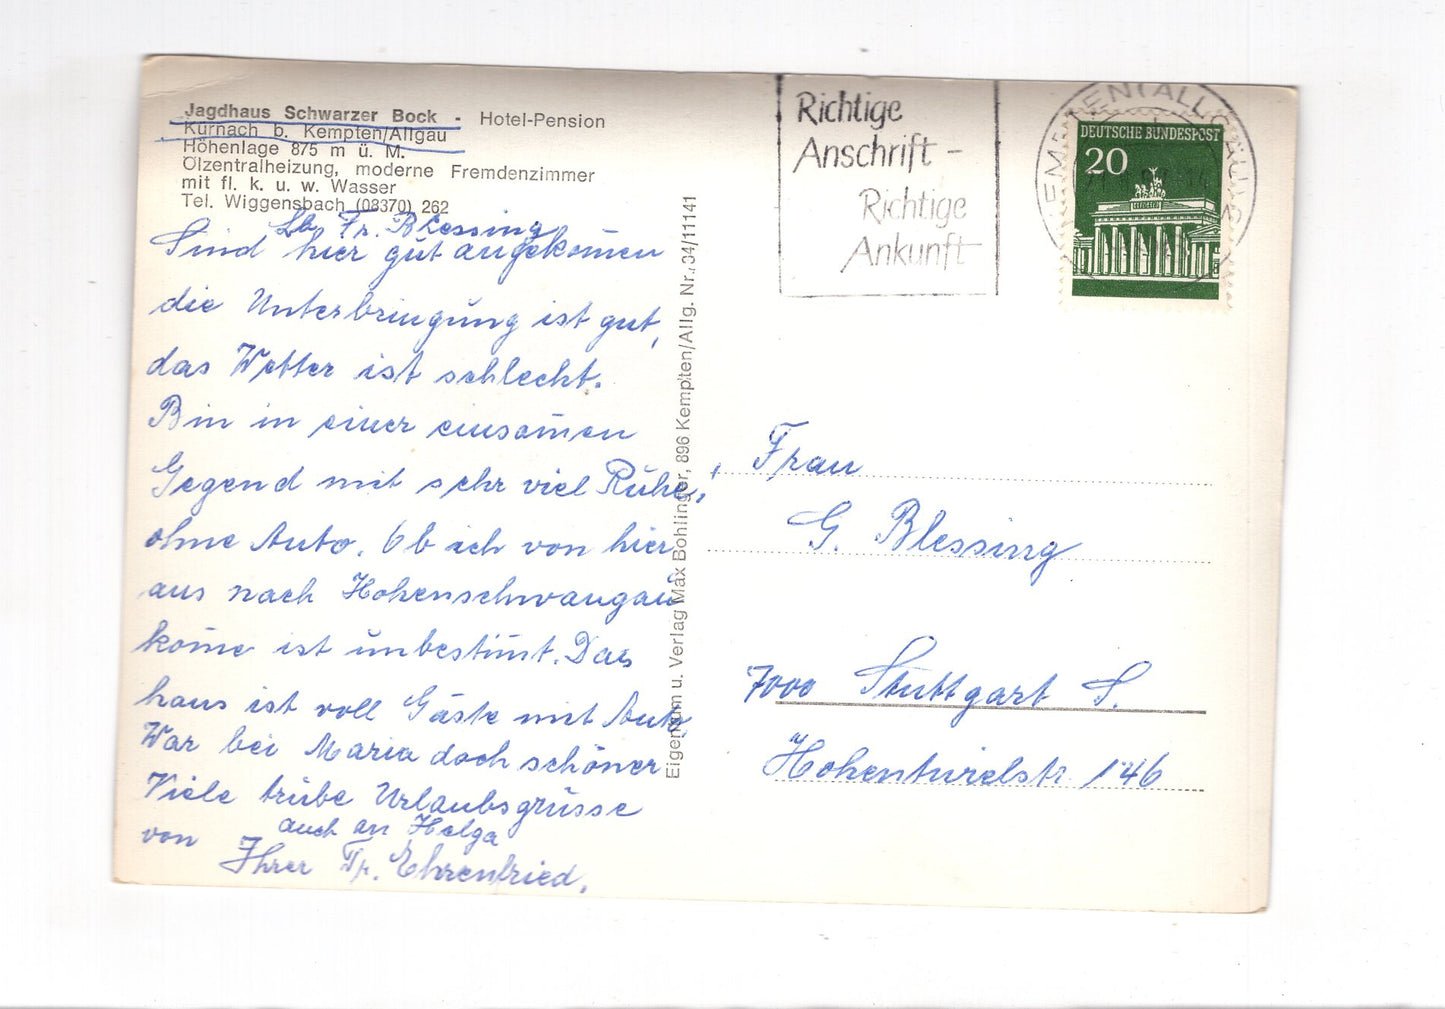 Jagdhaus Schwarzer Bock - Hotel-Pension
Kürnach b. Kempten/Allgäu
Höhenlage 875 m ü. M.
Ölzentralheizung, moderne Fremdenzimmer
mit fl. k. u. w. Wasser
Tel. Wiggensbach (08370) 262
Lb Fr. Blessing
Sind hier gut angekom̄en
die Unterbringung ist gut,
das Wetter ist schlecht.
Bin in einer einsam̄en
Gegend mit sehr viel Ruhe,
ohne Auto. Ob ich von hier
aus nach Hohenschwangau
kom̄e ist unbestim̄t. Das
haus ist voll Gäste mit Auto
War bei Maria doch schöner
Viele trübe Urlaubsgrüsse
auch an Helga
von Ihrer Fr. Ehrenfried.
Eigentum u. Verlag Max Bohlinger, 896 Kempten/Allg. Nr. 34/11141
Richtige
Anschrift -
Richtige
Ankunft
DEUTSCHE BUNDESPOST
20
Frau
G. Blessing
7000 Stuttgart S.
Hohentwielstr 146